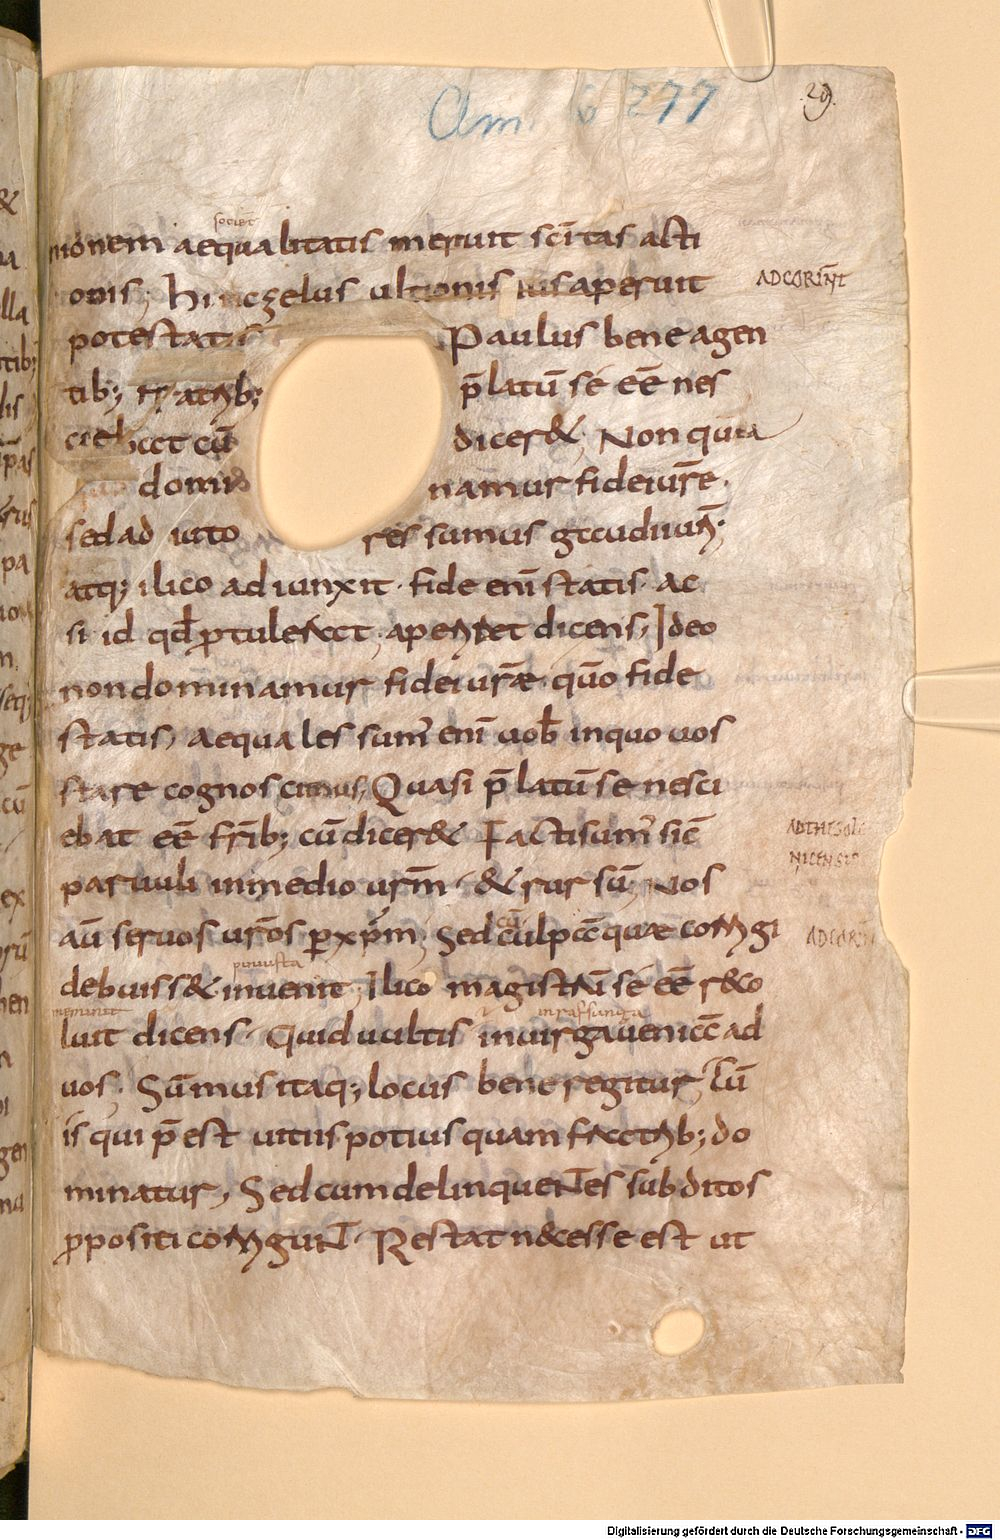 Clm. 6277
29.
societ
nionem aequalitatis meruit sc̄itas acti
onis; hinc zelus ultionis ius aperuit
ADCORINT
potestatis Paulus bene agen
tib; fratrib; p̄latū sē eē nes
ciebat cū dicer&; Non quia
domi namur fidei ur̄e.
sed ad iuto res sumus gaudii ur̄i;
atq; ilico adiunxit. fide enī statis. ac
si id qd̄ ꝓtulerat; aperiret dicens; Ideo
non dominamur fidei ur̄ae. quō fide
statis, aequales sum' enī uob̄ in quo uos
stare cognoscimus; Quasi p̄latū se nesci
ebat eē fr̄ib; cū dicer& Facti sum' sic̄
ADTHESALO
NICENSIS
paruuli in medio ur̄m. & rursū; Nos
cū
aū seruos ur̄os ꝑ xp̄m; Sed culpa quae corrigi
ADCORIN
debuiss& inuenit; Ilico magistrū sē eē r&o
luit dicens. Quid uultis in uirga ueniā ad
uos; Sūmus itaq; locus bene regitur, Cū
is qui p̄est uitiis potius quam fratrib; do
minatur, Sed cum delinquentes subditos
ꝓpositi corrigunt. Restat n&esse est ut
Digitalisierung gefördert durch die Deutsche Forschungsgemeinschaft - DFG